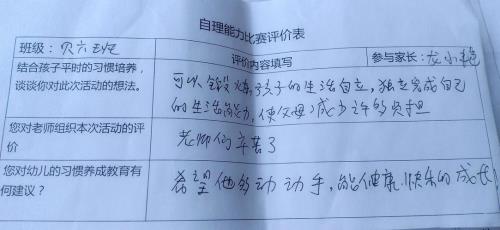 自理能力比赛评价表
班级：贝六班 评价内容填写 参与家长：龙小艳
结合孩子平时的习惯培养，
谈谈你对此次活动的想法。
可以锻炼孩子的生活自立，独立完成自己
的生活能力，使父母减少许多负担
您对老师组织本次活动的评
价
老师们辛苦了
您对幼儿的习惯养成教育有
何建议？
希望他多动动手，能健康快乐的成长！